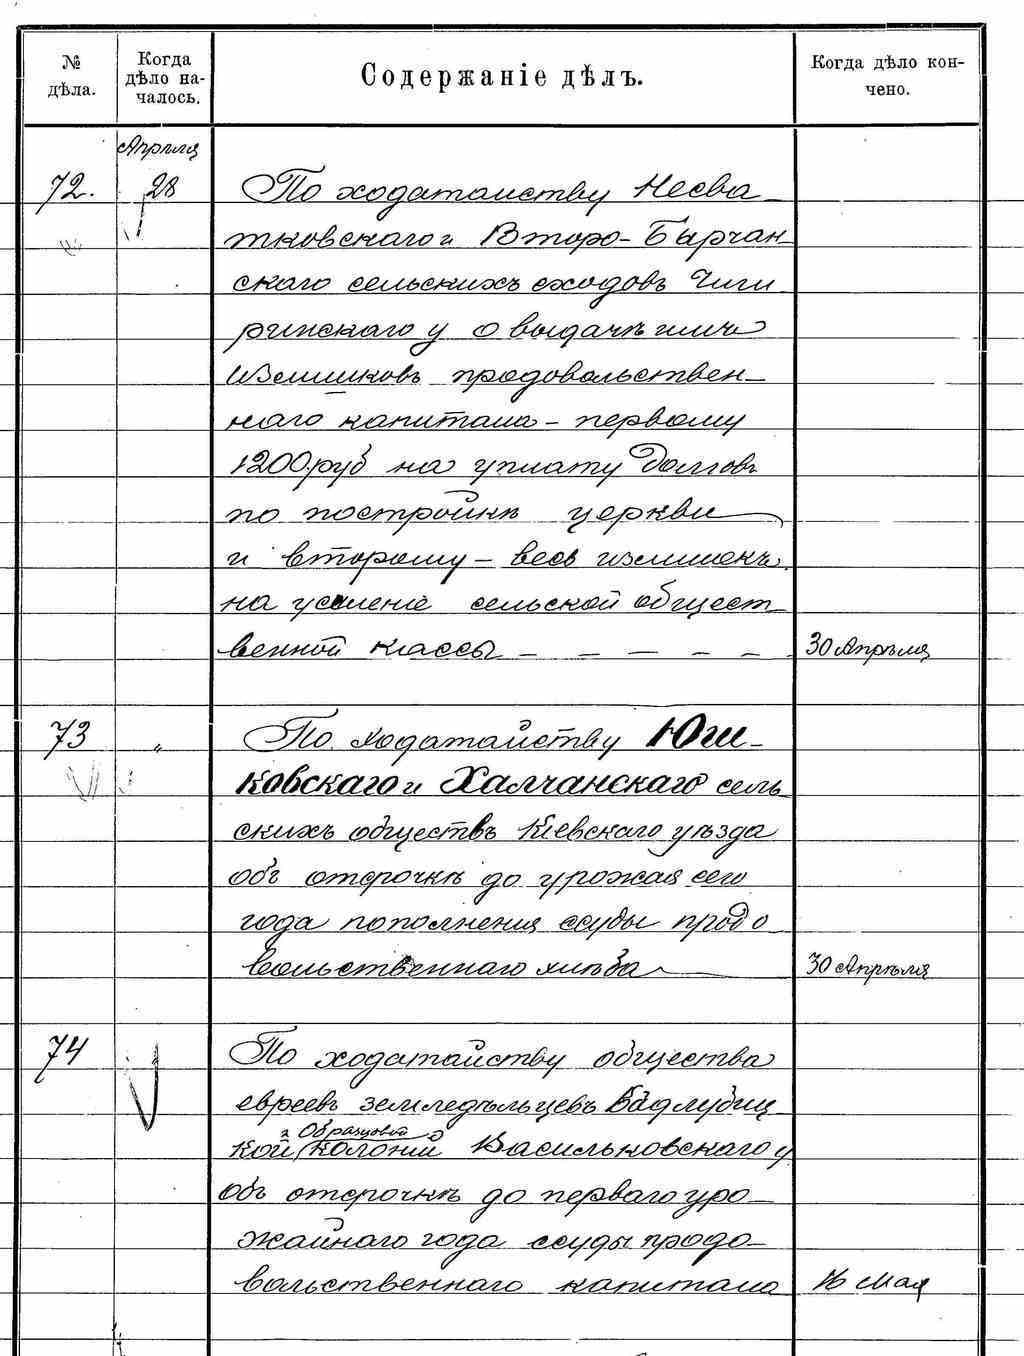 № дѣла.
Когда дѣло на-
чалось.
Содержаніе дѣлъ.
Когда дѣло кон-
чено.
Апрѣля
72. 28 По ходатайству Несва-
тковскаго и Второ-Бырчан-
скаго сельскихъ сходовъ Чиги
ринскаго у о выдачѣ имъ
излишковъ продовольствен-
наго капитала - первому
1200 руб на уплату долговъ
по постройкѣ церкви
и второму - весь излишекъ
на усиленіе сельской общест
венной кассы - - - - - - 30 Апрѣля
73 " По ходатайству Юш-
ковскаго и Халчанскаго сель
скихъ обществъ Кіевскаго уѣзда
объ отсрочкѣ до урожая сего
года пополненія ссуды продо
вольственнаго хлѣба 30 Апрѣля
74 По ходатайству общества
евреевъ земледѣльцевъ
и Образцовой
кой колоній Васильковскаго у
объ отсрочкѣ до перваго уро-
жайнаго года ссуды продо-
вольственнаго капитала 16 Мая